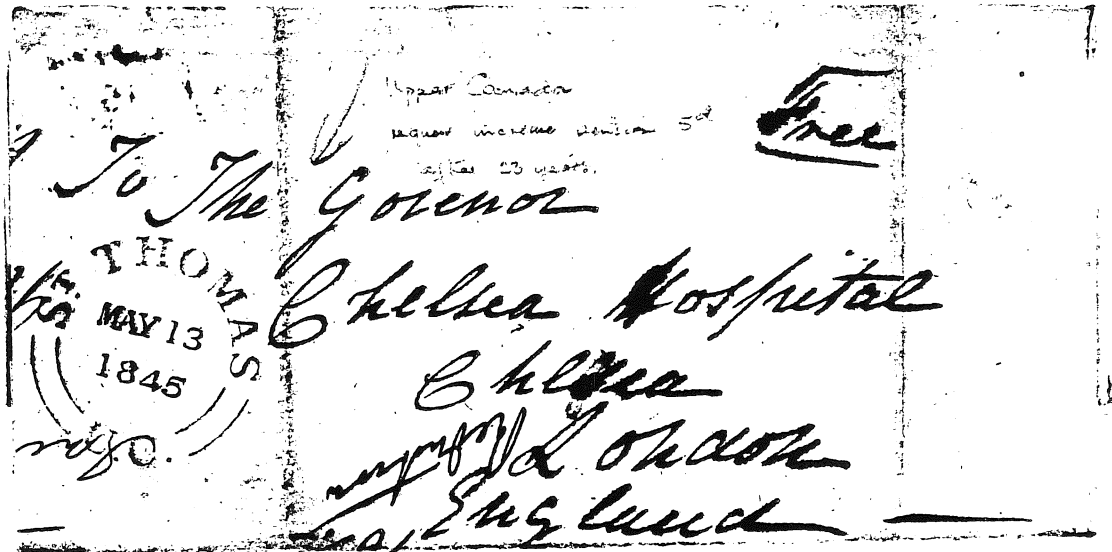 Upper Canada
request increase pension 5d
after 23 years.
Free
To The Govenor
Chelsea Hospital
Chelsea
London
England
ST. THOMAS
MAY 13
1845